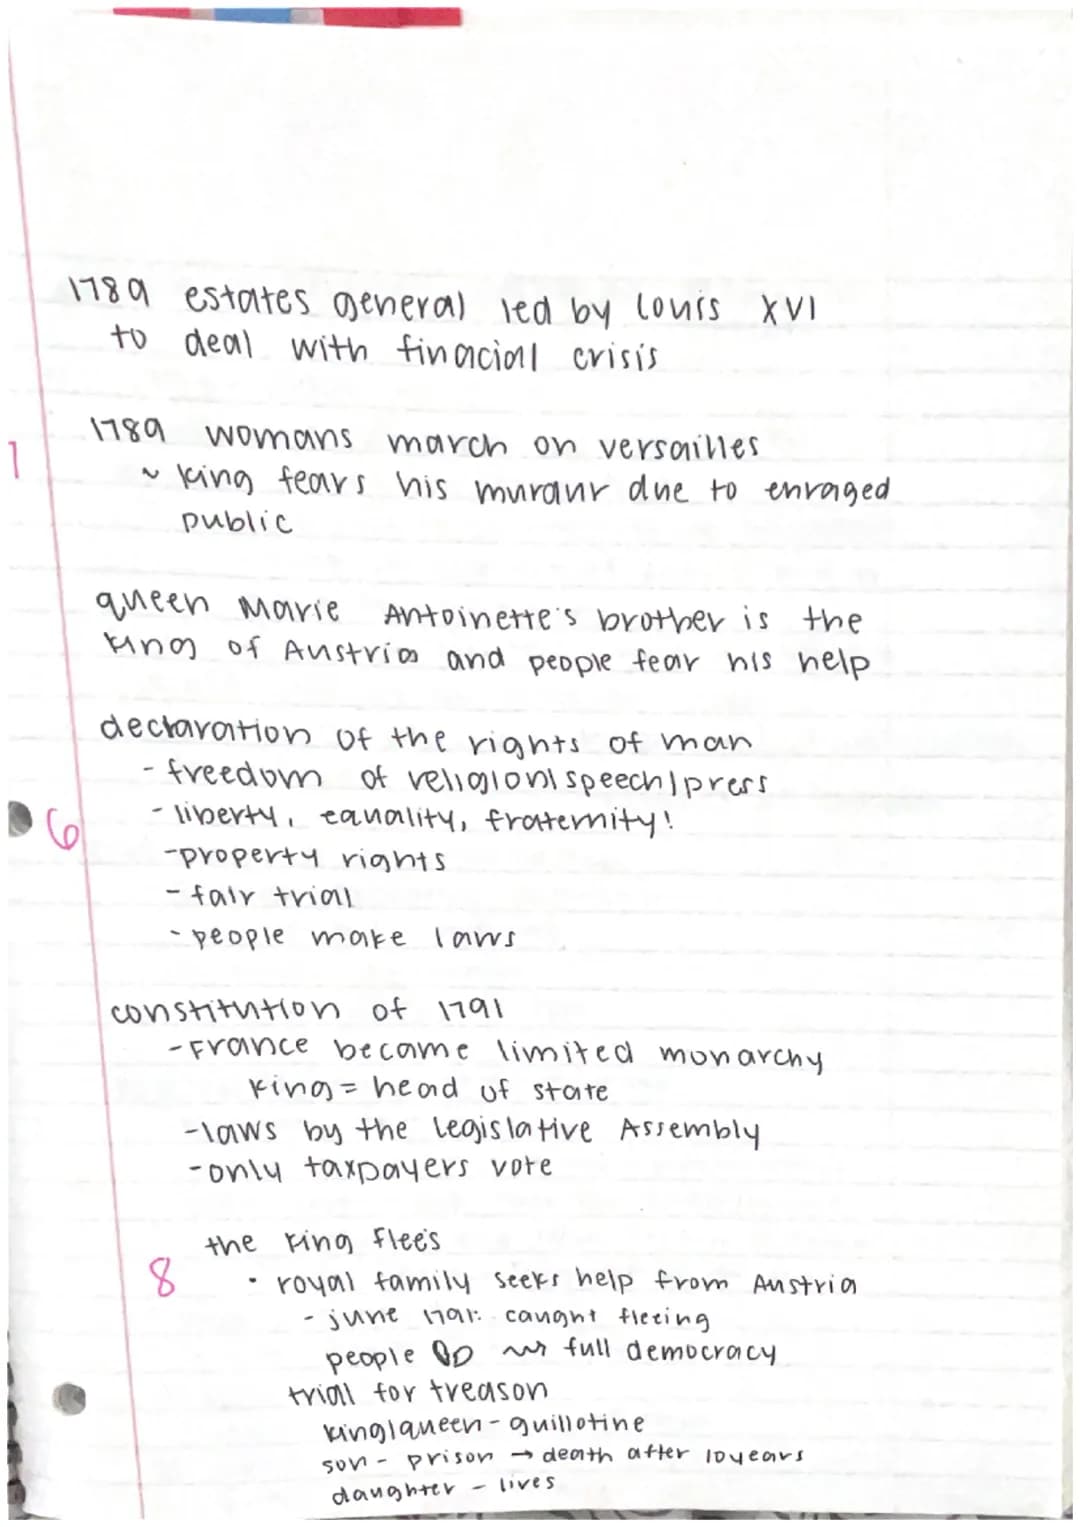 1789 estates general led by Louis XVI
to deal with finacial crisis
1789 womans march on versailles
1
~ king fears his muraur due to enraged
public
queen Marie Antoinette's brother is the
king of Austria and people fear his help
declaration of the rights of man
- freedom of religion/speech/press
6
- liberty, equality, fraternity!
- property rights
- fair trial
- people make laws
constitution of 1791
- France became limited monarchy
king = head of state
- laws by the Legislative Assembly
- only taxpayers vote
the king flee's
8
• royal family seeks help from Austria
- june 1791: caught fleeing
people full democracy
trial for treason
king/queen - guillotine
son - prison → death after 10 years
daughter - lives